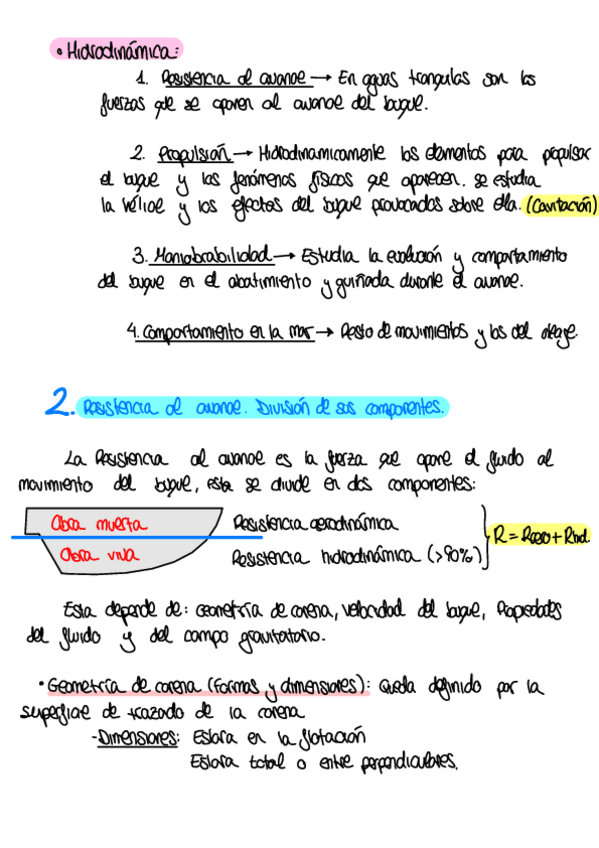 • Hidrodinámica:
1. Resistencia al avance → En aguas tranquilas son las
fuerzas que se oponen al avance del buque.
2. Propulsión → Hidrodinamicamente los elementos para propulsar
el buque y los fenómenos físicos que aparecen. se estudia
la hélice y los efectos del buque provocados sobre ella. (Cavitación)
3. Maniobrabilidad → Estudia la evolución y comportamiento
del buque en el abatimiento y guiñada durante el avance.
4. Comportamiento en la mar → Resto de movimientos y los del oleaje.
2. Resistencia al avance. División de sus componentes.
La Resistencia al avance es la fuerza que opone el fluido al
movimiento del buque, esta se divide en dos componentes:
Obra muerta Resistencia aerodinámica
R = Raero + Rhid.
Obra viva Resistencia hidrodinámica (>90%)
Esta depende de: Geometría de carena, velocidad del buque, Propiedades
del fluido y del campo gravitatorio.
• Geometría de carena (formas y dimensiones): Queda definido por la
superficie de trazado de la carena
- Dimensiones: Eslora en la flotación
Eslora total o entre perpendiculares.